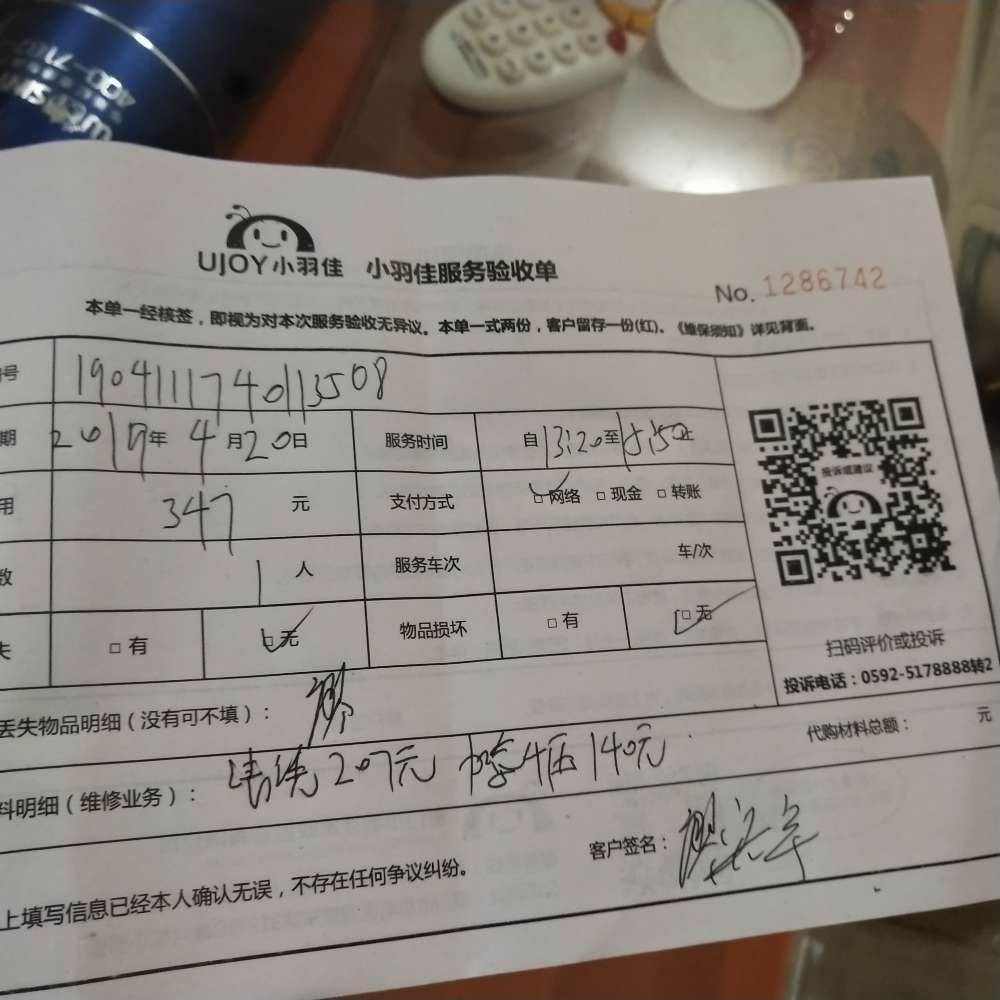 400-7107
UJOY小羽佳 小羽佳服务验收单
No. 1286742
本单一经核签，即视为对本次服务验收无异议。本单一式两份，客户留存一份(红)。《维保须知》详见背面。
号 1904111740113508
期 2019年4月20日 服务时间 自13:20至15:50止
用 347元 支付方式 □网络 □现金 □转账
数 1人 服务车次 车/次
失 □有 □无 物品损坏 □有 □无
投诉或建议
扫码评价或投诉
投诉电话：0592-5178888转2
丢失物品明细（没有可不填）：
料明细（维修业务）：清洗207元 4 140元 代购材料总额： 元
客户签名：
上填写信息已经本人确认无误，不存在任何争议纠纷。